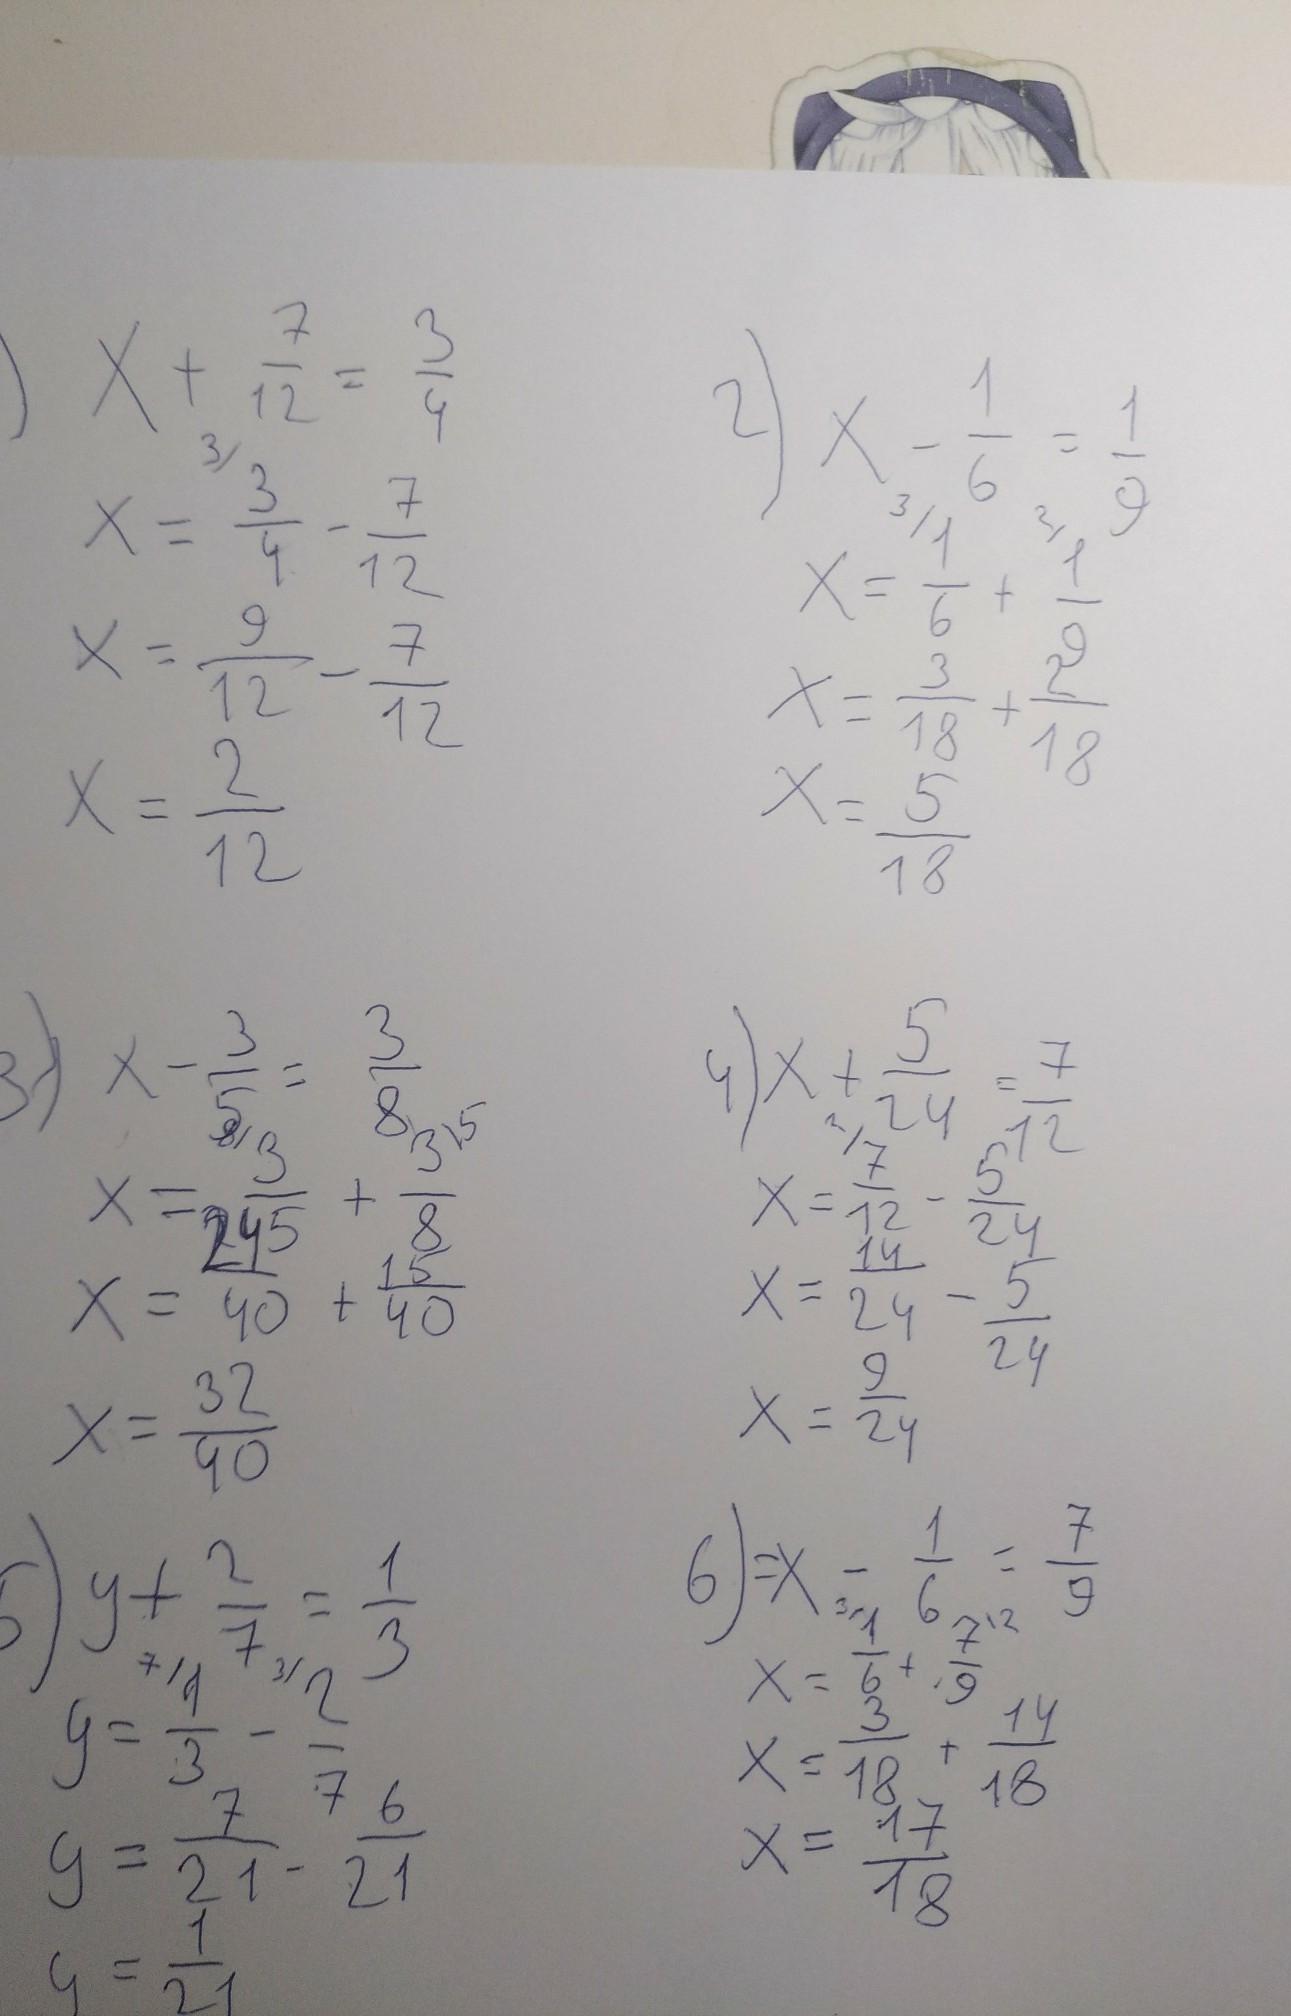 ) x + 7/12 = 3/4
3/
x = 3/4 - 7/12
x = 9/12 - 7/12
x = 2/12
2) x - 1/6 = 1/9
3/ 3/
x = 1/6 + 1/9
x = 3/18 + 2/18
x = 5/18
3) x - 3/5 = 3/8
8/ \5
x = 3/5 + 3/8
x = 24/40 + 15/40
x = 32/40
4) x + 5/24 = 7/12
x = 7/12 - 5/24
x = 14/24 - 5/24
x = 9/24
5) y + 2/7 = 1/3
7/ 3/
y = 1/3 - 2/7
y = 7/21 - 6/21
y = 1/21
6) = x - 1/6 = 7/9
3/ \2
x = 1/6 + 7/9
x = 3/18 + 14/18
x = 17/18